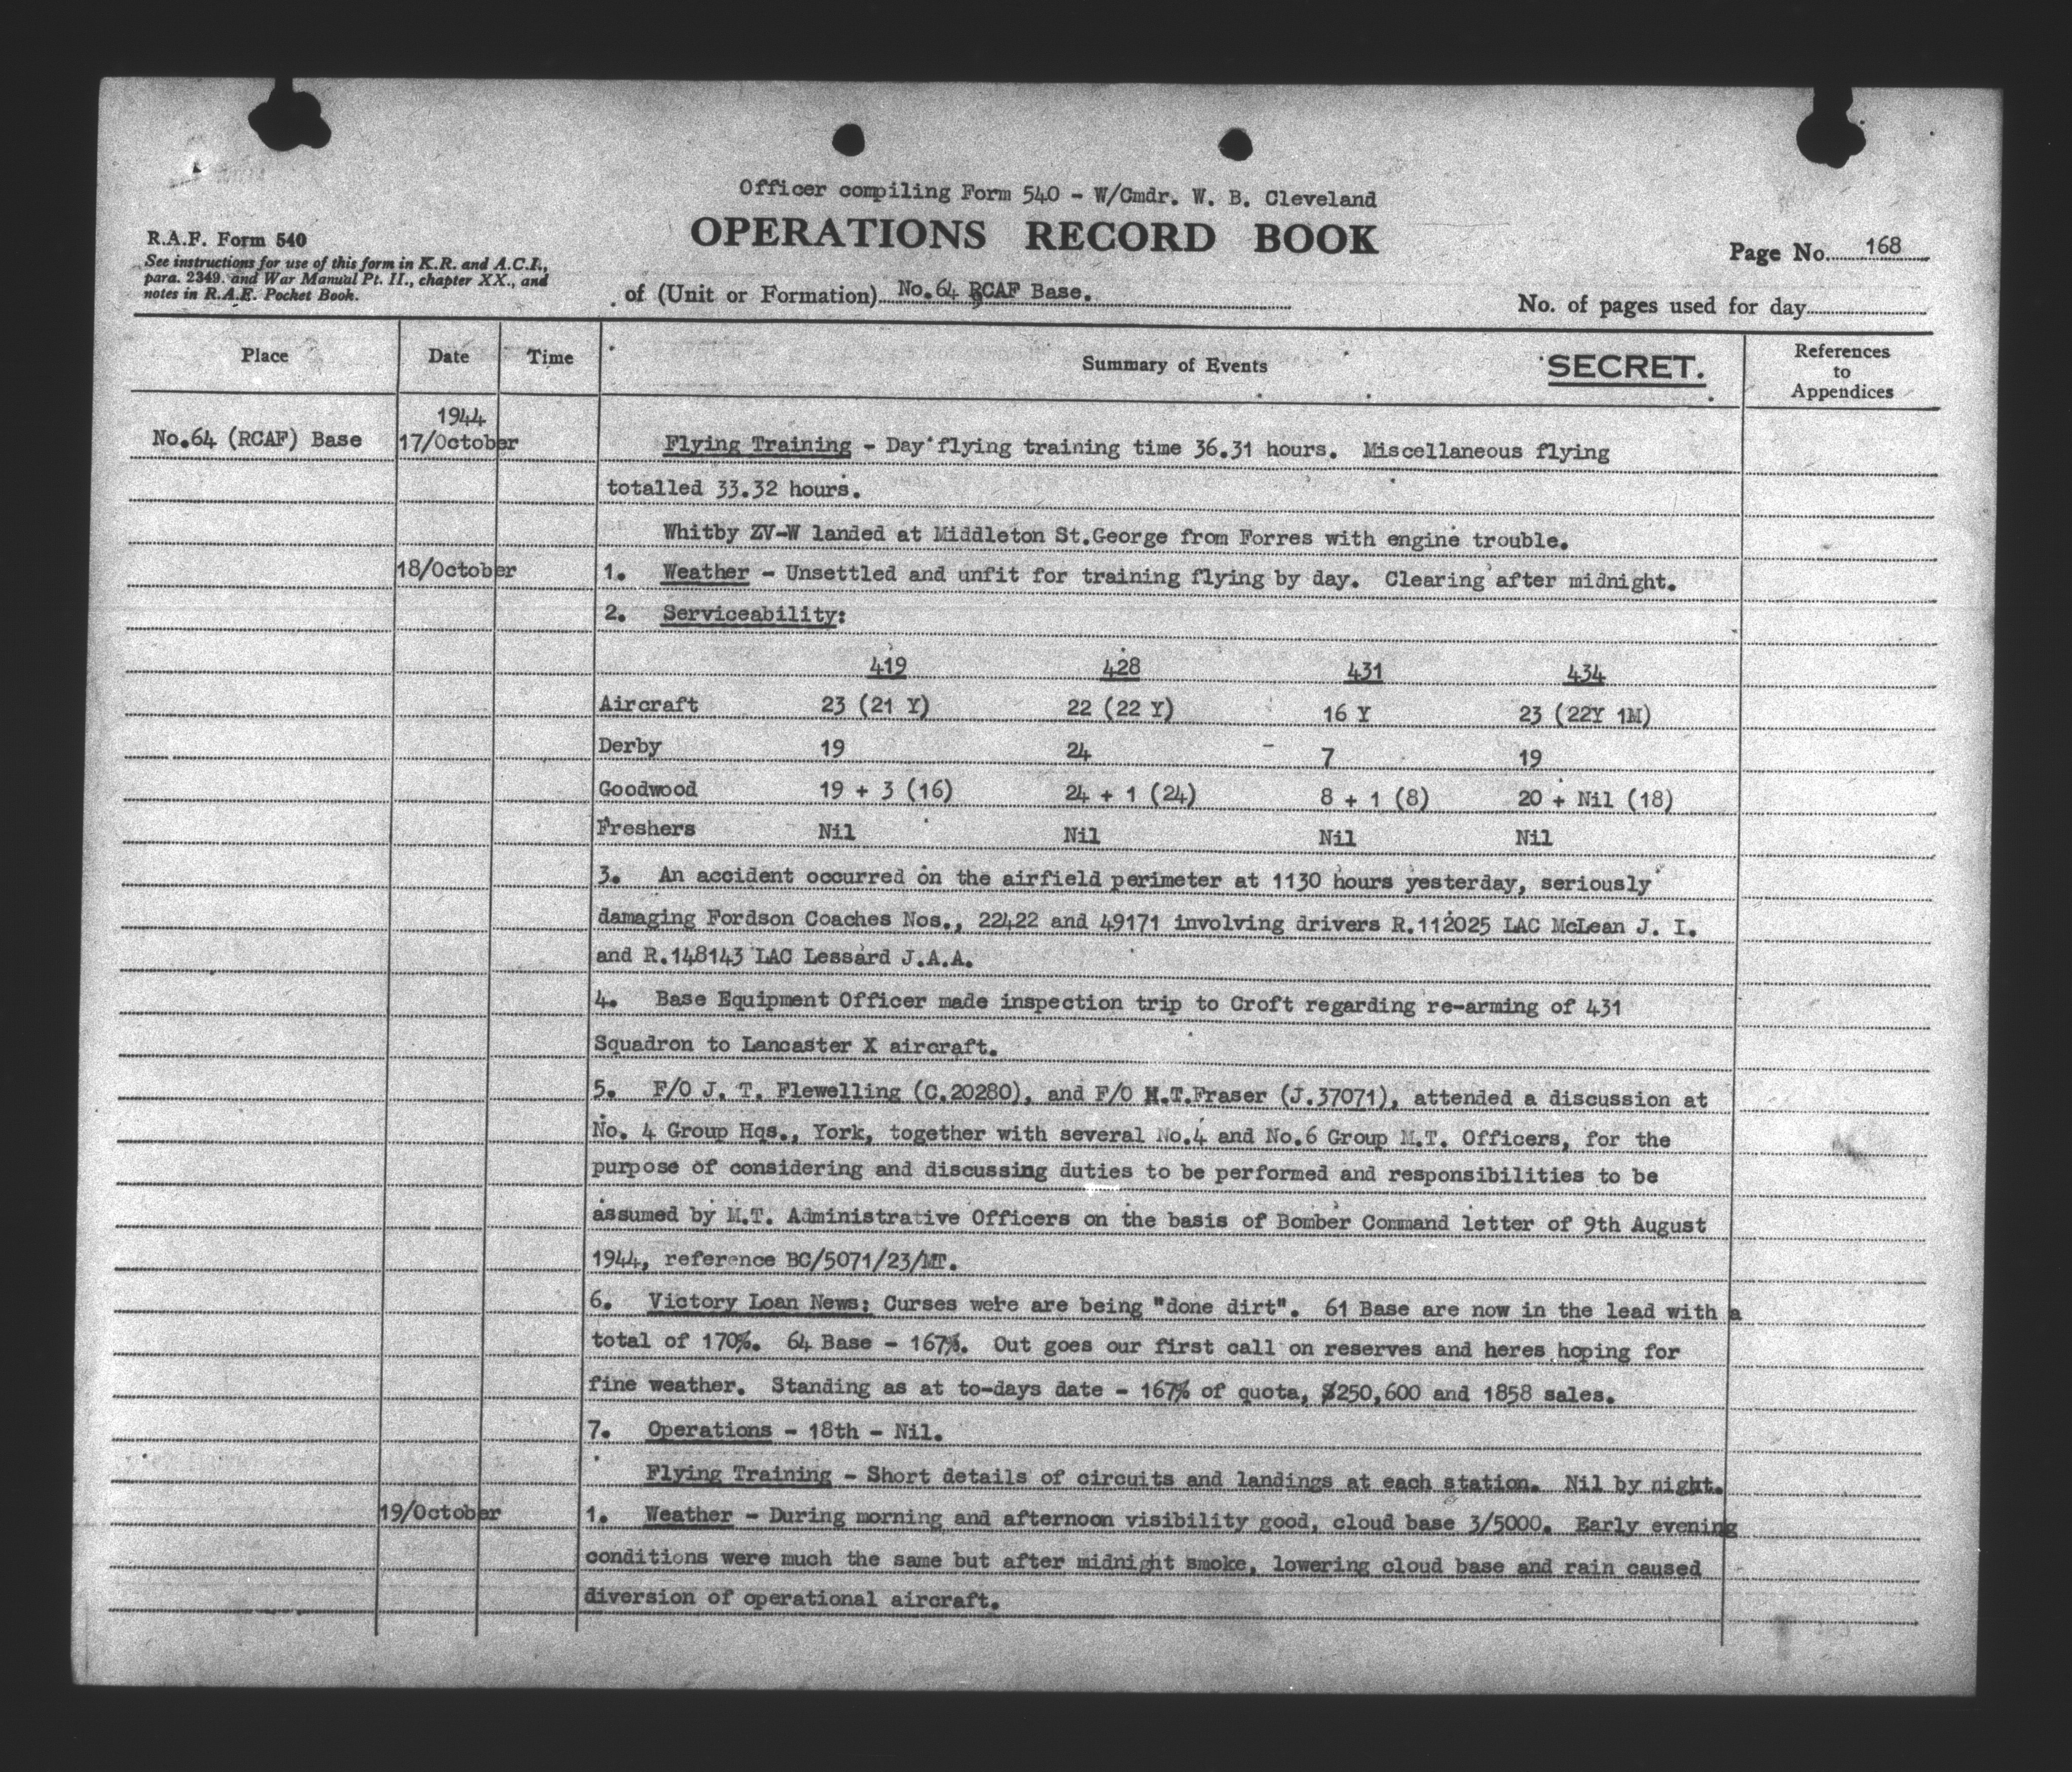 Officer compiling Form 540 - W/Cmdr. W. B. Cleveland
OPERATIONS RECORD BOOK
R.A.F. Form 540
See instructions for use of this form in K.R. and A.C.I.,
para. 2349. and War Manual Pt. II., chapter XX., and
notes in R.A.F. Pocket Book.
Page No. 168
of (Unit or Formation) No.64 RCAF Base.
No. of pages used for day
Place Date Time Summary of Events SECRET. References to Appendices
1944
No.64 (RCAF) Base 17/October Flying Training - Day flying training time 36.31 hours. Miscellaneous flying
totalled 33.32 hours.
Whitby ZV-W landed at Middleton St.George from Forres with engine trouble.
18/October 1. Weather - Unsettled and unfit for training flying by day. Clearing after midnight.
2. Serviceability:
419 428 431 434
Aircraft 23 (21 Y) 22 (22 Y) 16 Y 23 (22Y 1M)
Derby 19 24 7 19
Goodwood 19 + 3 (16) 24 + 1 (24) 8 + 1 (8) 20 + Nil (18)
Freshers Nil Nil Nil Nil
3. An accident occurred on the airfield perimeter at 1130 hours yesterday, seriously
damaging Fordson Coaches Nos., 22422 and 49171 involving drivers R.112025 LAC McLean J. I.
and R.148143 LAC Lessard J.A.A.
4. Base Equipment Officer made inspection trip to Croft regarding re-arming of 431
Squadron to Lancaster X aircraft.
5. F/O J. T. Flewelling (C.20280), and F/O M.T.Fraser (J.37071), attended a discussion at
No. 4 Group Hqs., York, together with several No.4 and No.6 Group M.T. Officers, for the
purpose of considering and discussing duties to be performed and responsibilities to be
assumed by M.T. Administrative Officers on the basis of Bomber Command letter of 9th August
1944, reference BC/5071/23/MT.
6. Victory Loan News: Curses we're are being "done dirt". 61 Base are now in the lead with a
total of 170%. 64 Base - 167%. Out goes our first call on reserves and heres hoping for
fine weather. Standing as at to-days date - 167% of quota, $250,600 and 1858 sales.
7. Operations - 18th - Nil.
Flying Training - Short details of circuits and landings at each station. Nil by night.
19/October 1. Weather - During morning and afternoon visibility good, cloud base 3/5000. Early evening
conditions were much the same but after midnight smoke, lowering cloud base and rain caused
diversion of operational aircraft.